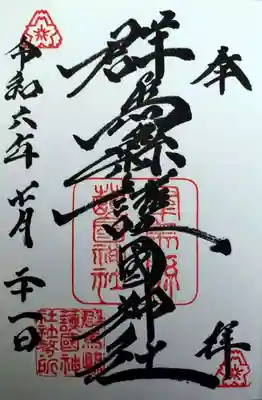 奉拝
群馬縣護國神社
群馬縣
護國神社
令和六年四月二十一日
群馬縣
護國神
社社務所